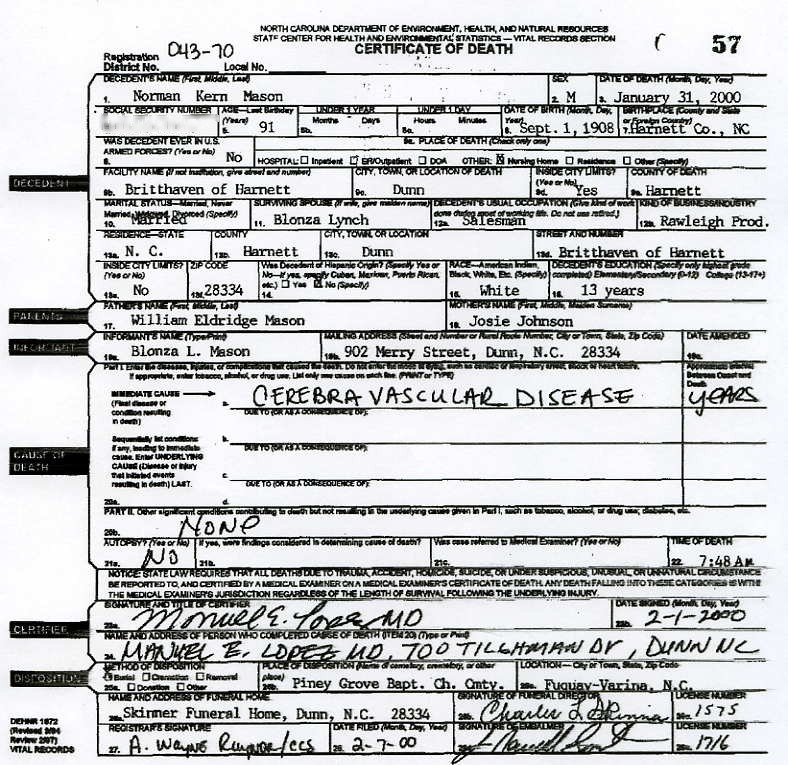 NORTH CAROLINA DEPARTMENT OF ENVIRONMENT, HEALTH, AND NATURAL RESOURCES
STATE CENTER FOR HEALTH AND ENVIRONMENTAL STATISTICS – VITAL RECORDS SECTION
CERTIFICATE OF DEATH
57
Registration District No. 043-70 Local No.
DECEDENT'S NAME (First, Middle, Last) SEX DATE OF DEATH (Month, Day, Year)
1. Norman Kern Mason 2. M 3. January 31, 2000
SOCIAL SECURITY NUMBER AGE—Last Birthday (Years) UNDER 1 YEAR UNDER 1 DAY DATE OF BIRTH (Month, Day, Year) BIRTHPLACE (County and State or Foreign Country)
5. 91 5b. Months Days Hours Minutes 6. Sept. 1, 1908 7. Harnett Co., NC
WAS DECEDENT EVER IN U.S. ARMED FORCES? (Yes or No) 9a. PLACE OF DEATH (Check only one)
8. No HOSPITAL: Inpatient ER/Outpatient DOA OTHER: Nursing Home Residence Other (Specify)
DECEDENT
FACILITY NAME (If not institution, give street and number) CITY, TOWN, OR LOCATION OF DEATH INSIDE CITY LIMITS? (Yes or No) COUNTY OF DEATH
9b. Britthaven of Harnett 9c. Dunn 9d. Yes 9e. Harnett
MARITAL STATUS—Married, Never Married, Widowed, Divorced (Specify) SURVIVING SPOUSE (If wife, give maiden name) DECEDENT'S USUAL OCCUPATION (Give kind of work done during most of working life. Do not use retired.) KIND OF BUSINESS/INDUSTRY
10. Married 11. Blonza Lynch 12a. Salesman 12b. Rawleigh Prod.
RESIDENCE—STATE COUNTY CITY, TOWN, OR LOCATION STREET AND NUMBER
13a. N. C. 13b. Harnett 13c. Dunn 13d. Britthaven of Harnett
INSIDE CITY LIMITS? (Yes or No) ZIP CODE Was Decedent of Hispanic Origin? (Specify Yes or No—If yes, specify Cuban, Mexican, Puerto Rican, etc.) Yes No (Specify) RACE—American Indian, Black, White, Etc. (Specify) DECEDENT'S EDUCATION (Specify only highest grade completed) Elementary/Secondary (0-12) College (13-17+)
13e. No 13f. 28334 14. 15. White 16. 13 years
PARENTS
FATHER'S NAME (First, Middle, Last) MOTHER'S NAME (First, Middle, Maiden Surname)
17. William Eldridge Mason 18. Josie Johnson
INFORMANT
INFORMANT'S NAME (Type/Print) MAILING ADDRESS (Street and Number or Rural Route Number, City or Town, State, Zip Code) DATE AMENDED
19a. Blonza L. Mason 19b. 902 Merry Street, Dunn, N.C. 28334 19c.
Part I. Enter the diseases, injuries, or complications that caused the death. Do not enter the mode of dying, such as cardiac or respiratory arrest, shock or heart failure.
If appropriate, enter tobacco, alcohol, or drug use. List only one cause on each line. (PRINT or TYPE)
Approximate Interval Between Onset and Death
IMMEDIATE CAUSE (Final disease or condition resulting in death) a. CEREBRAVASCULAR DISEASE YEARS
DUE TO (OR AS A CONSEQUENCE OF):
CAUSE OF DEATH
Sequentially list conditions if any, leading to immediate cause. Enter UNDERLYING CAUSE (Disease or injury that initiated events resulting in death) LAST.
b.
DUE TO (OR AS A CONSEQUENCE OF):
c.
DUE TO (OR AS A CONSEQUENCE OF):
20a. d.
PART II. Other significant conditions contributing to death but not resulting in the underlying cause given in Part I, such as tobacco, alcohol, or drug use; diabetes, etc.
20b. NONE
AUTOPSY? (Yes or No) If yes, were findings considered in determining cause of death? Was case referred to Medical Examiner? (Yes or No) TIME OF DEATH
21a. NO 21b. 21c. 22. 7:48 AM
NOTICE: STATE LAW REQUIRES THAT ALL DEATHS DUE TO TRAUMA, ACCIDENT, HOMICIDE, SUICIDE, OR UNDER SUSPICIOUS, UNUSUAL, OR UNNATURAL CIRCUMSTANCE
BE REPORTED TO, AND CERTIFIED BY A MEDICAL EXAMINER ON A MEDICAL EXAMINER'S CERTIFICATE OF DEATH. ANY DEATH FALLING INTO THESE CATEGORIES IS WITHIN
THE MEDICAL EXAMINER'S JURISDICTION REGARDLESS OF THE LENGTH OF SURVIVAL FOLLOWING THE UNDERLYING INJURY.
CERTIFIER
SIGNATURE AND TITLE OF CERTIFIER DATE SIGNED (Month, Day, Year)
23a. Manuel E. Lopez MD 23b. 2-1-2000
NAME AND ADDRESS OF PERSON WHO COMPLETED CAUSE OF DEATH (ITEM 20) (Type or Print)
24. MANUEL E. LOPEZ MD, 700 TILGHMAN DR, DUNN NC
DISPOSITION
METHOD OF DISPOSITION PLACE OF DISPOSITION (Name of cemetery, crematory, or other place) LOCATION—City or Town, State, Zip Code
Burial Cremation Removal
25a. Donation Other 25b. Piney Grove Bapt. Ch. Cmty. 25c. Fuquay-Varina, N.C.
NAME AND ADDRESS OF FUNERAL HOME SIGNATURE OF FUNERAL DIRECTOR LICENSE NUMBER
26a. Skinner Funeral Home, Dunn, N.C. 28334 26b. Charles L. Skinner 26c. 1575
DEHNR 1872 (Revised 9/94 Review 2/97) VITAL RECORDS
REGISTRAR'S SIGNATURE DATE FILED (Month, Day, Year) SIGNATURE OF EMBALMER LICENSE NUMBER
27. A. Wayne Raynor/ccs 28. 2-7-00 1716